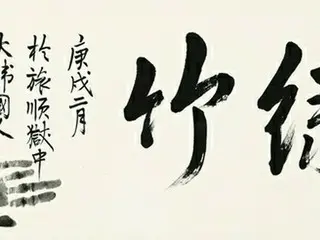 綠竹
庚戌二月
於旅順獄中
大韓國人